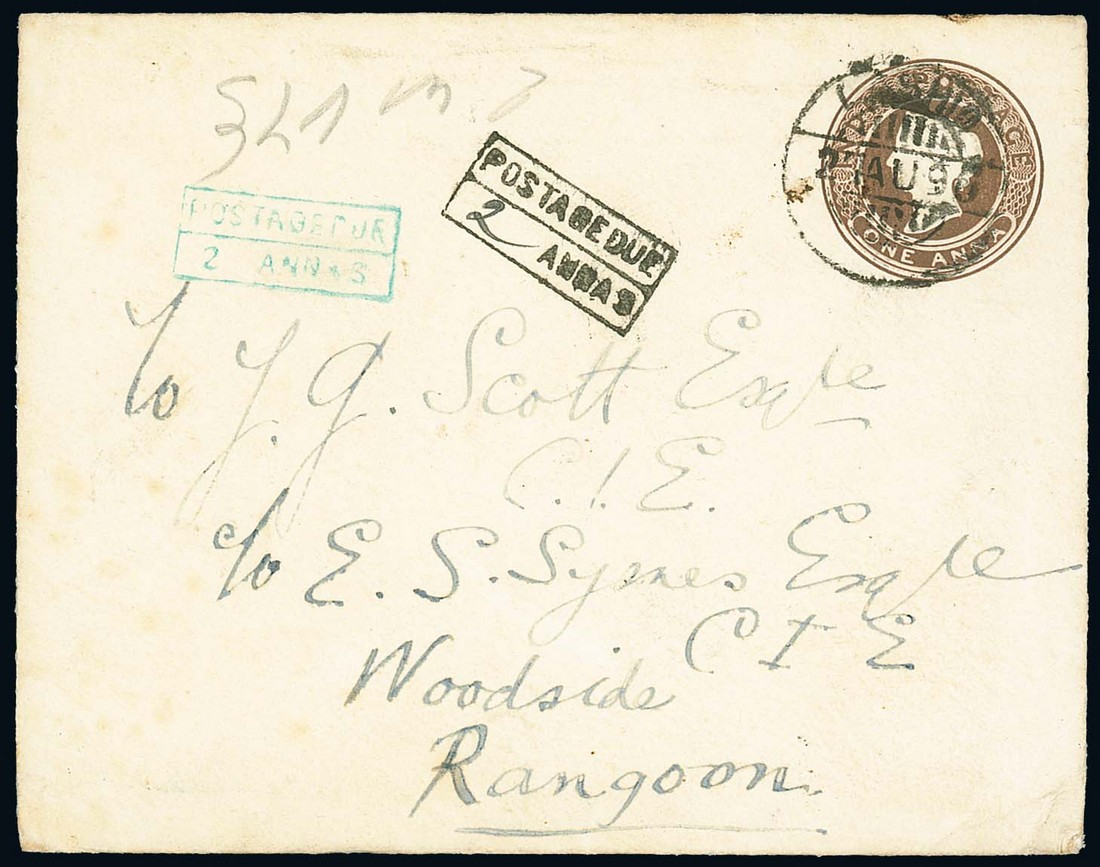 POSTAGE DUE
2 ANNAS
POSTAGE DUE
2 ANNAS
AU 98
ONE ANNA
To J. G. Scott Esqre
C.I.E.
c/o E. S. Symes Esqre
C I E
Woodside
Rangoon